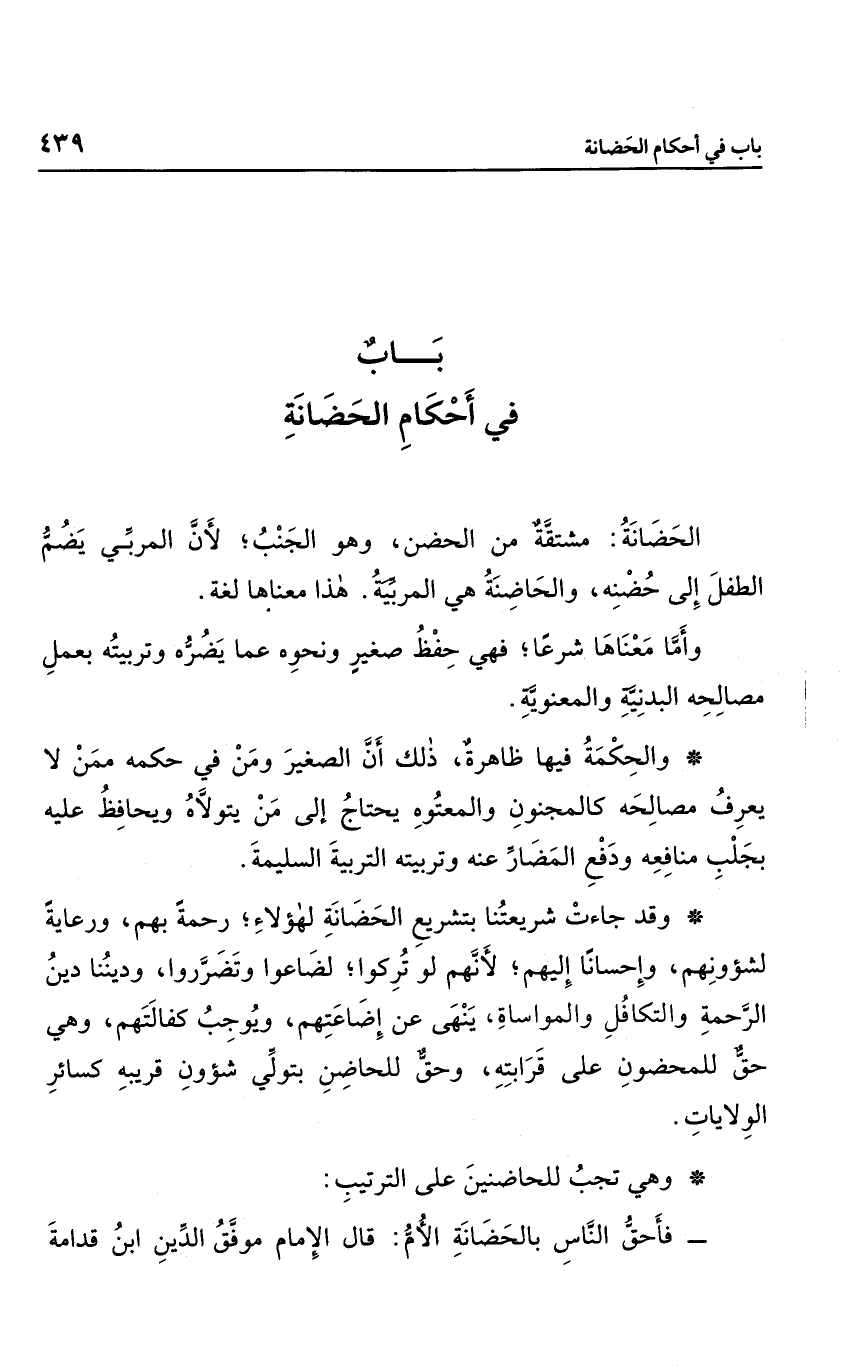 باب في أحكام الحَضانة
٤٣٩
بَــابٌ
في أَحْكَامِ الحَضَانَةِ
الحَضَانَةُ: مشتقَّةٌ من الحضن، وهو الجَنْبُ؛ لأَنَّ المربِّي يَضُمُّ
الطفلَ إِلى حُضْنِه، والحَاضِنَةُ هي المربِّيَةُ. هٰذا معناها لغة.
وأَمَّا مَعْنَاهَا شرعًا؛ فهي حِفْظُ صغيرٍ ونحوِه عما يَضُرُّه وتربيتُه بعملِ
مصالِحِه البدنِيَّةِ والمعنويَّةِ.
* والحِكْمَةُ فيها ظاهرةٌ، ذٰلك أَنَّ الصغيرَ ومَنْ في حكمه ممَنْ لا
يعرِفُ مصالِحَه كالمجنونِ والمعتُوهِ يحتاجُ إلى مَنْ يتولاَّهُ ويحافِظُ عليه
بجَلْبِ منافِعِه ودَفْعِ المَضَارِّ عنه وتربيته التربيةَ السليمةَ.
* وقد جاءتْ شريعتُنا بتشريعِ الحَضَانَةِ لهٰؤلاءِ؛ رحمةً بهم، ورعايةً
لشؤونِهم، وإِحسانًا إِليهم؛ لأَنَّهم لو تُرِكوا؛ لضَاعوا وتَضَرَّروا، ودينُنا دينُ
الرَّحمةِ والتكافُلِ والمواساةِ، يَنْهَى عن إِضَاعَتِهم، ويُوجِبُ كفالَتَهم، وهي
حقٌّ للمحضونِ على قَرَابتِهِ، وحقٌّ للحاضِنِ بتولِّي شؤونِ قريبهِ كسائرِ
الوِلاياتِ.
* وهي تجبُ للحاضنينَ على الترتيبِ:
ــ فأَحقُّ النَّاسِ بالحَضَانَةِ الأُمُّ: قال الإِمام موفَّقُ الدِّينِ ابنُ قدامةَ